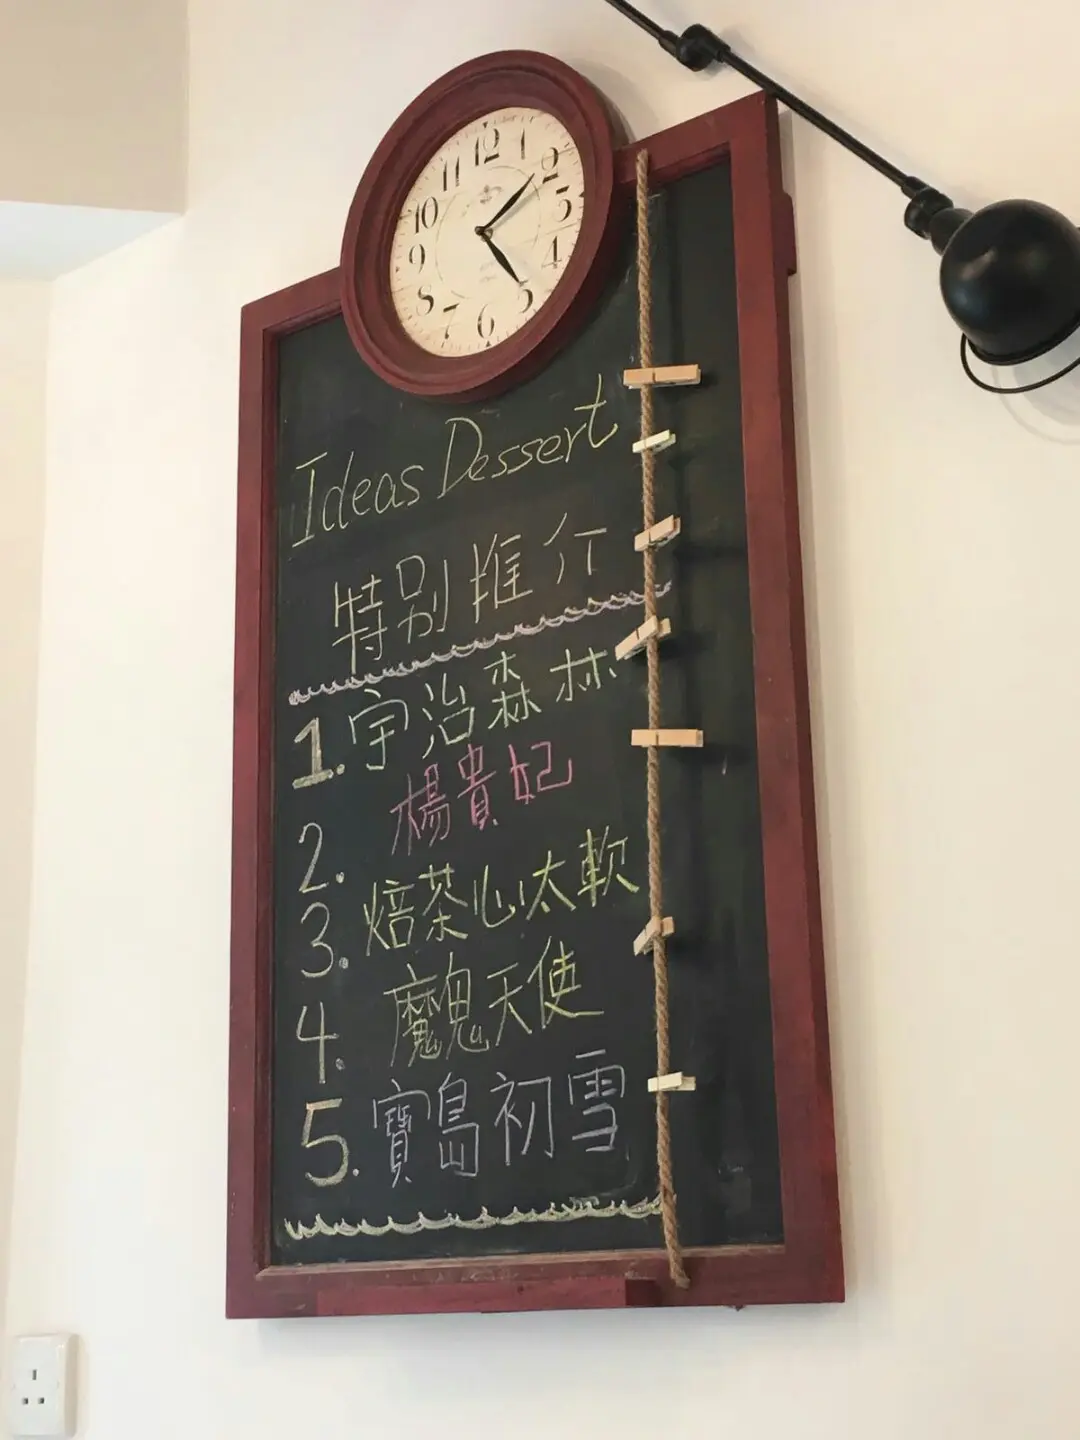 12
1
2
3
4
5
6
7
8
9
10
11
Ideas Dessert
特别推介
1.宇治森林
2. 楊貴妃
3. 焙茶心太軟
4. 魔鬼天使
5. 寶島初雪